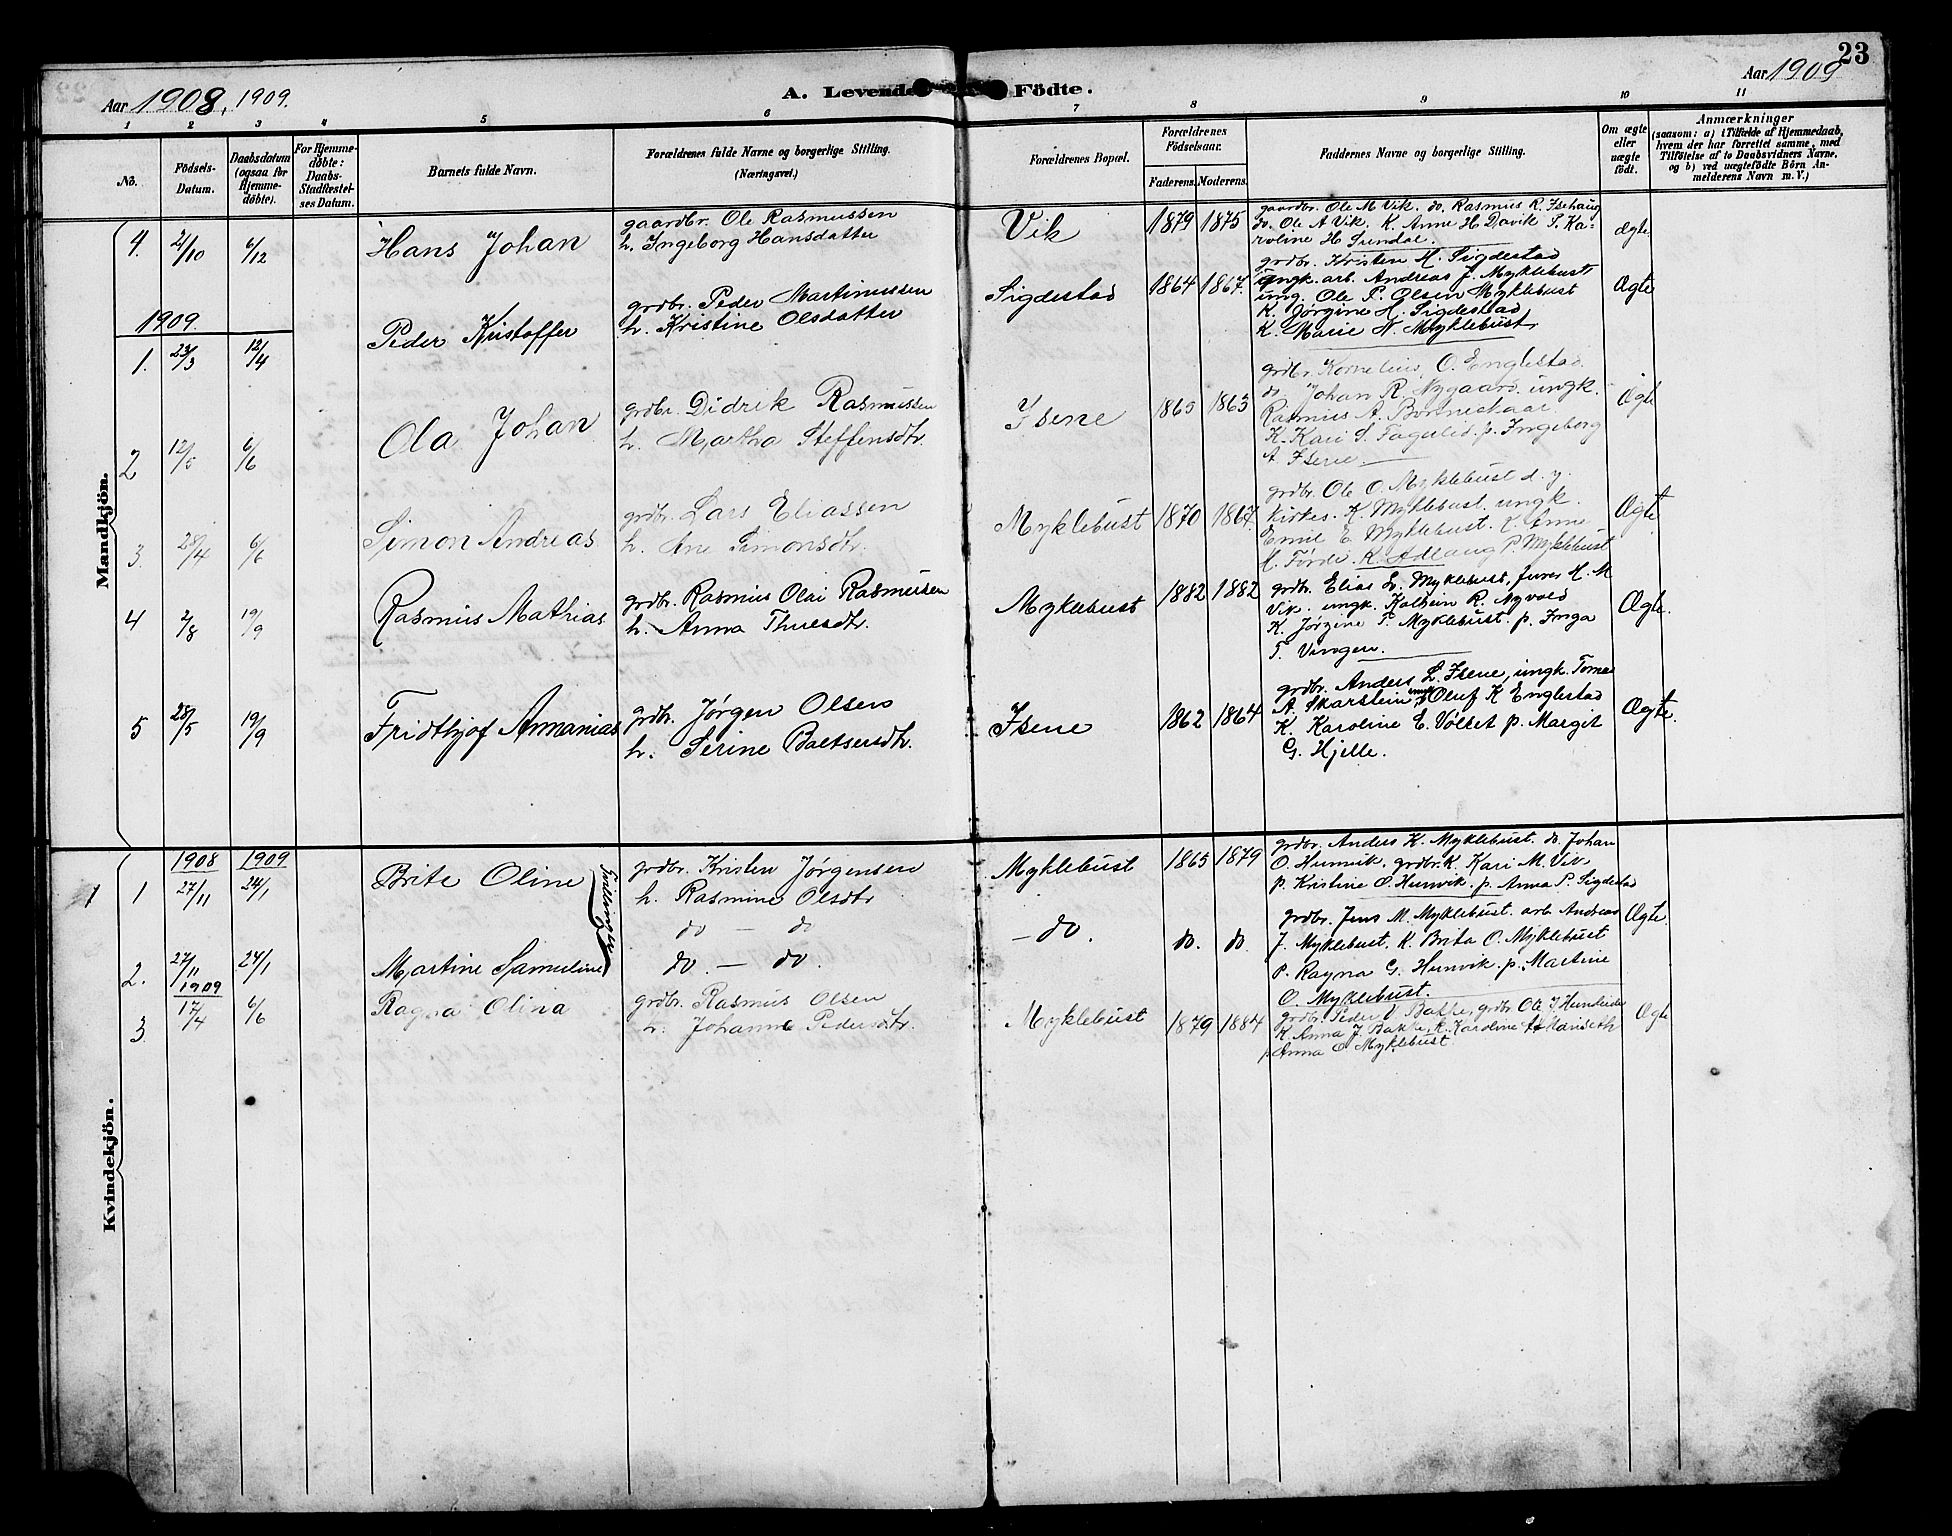 23
Aar 1908, 1909.
A. Levende Födte.
Aar 1909
1 2 3 4 5 6 7 8 9 10 11
No.
Födsels-Datum.
Daabsdatum (ogsaa for Hjemmedøbte).
For Hjemmedøbte: Daabs-Stadfæstelses Datum.
Barnets fulde Navn.
Forældrenes fulde Navne og borgerlige Stilling.
(Næringsvei.)
Forældrenes Bopæl.
Forældrenes Födselsaar.
Faderens. Moderens.
Faddernes Navne og borgerlige Stilling.
Om ægte eller uægte födt.
Anmærkninger
(saasom: a) i Tilfælde af Hjemmedaab,
hvem der har forrettet samme, med
Tilføielse af to Daabsvidners Navne,
og b) ved uægtefödte Börn Anmelderens Navn m. V.)
Mandkjön.
4. 2/10 6/12 Hans Johan
gaardbr. Ole Rasmussen
h. Ingeborg Hansdatter
Vik 1879 1875
gaardbr. Ole M Vik. do. Rasmus R. Isehaug
do. Ole A Vik. K. Anne H Davik P. Ka-
roline H Sundal.
ægte.
1909.
1. 23/3 12/4 Peder Kristoffer
grdbr. Peder Martinussen
h. Kristine Olsdatter
Sigdestad 1864 1867.
grdbr. Kristen M. Sigdestad
ungk. arb. Andreas J. Myklebust
ung. Ole P. Olsen Myklebust
K. Jørgine H. Sigdestad
K. Marie N. Myklebust
Ægte
2 12/5 6/6 Ola Johan
grdbr. Didrik Rasmussen
h. Martha Steffensdtr.
Isene 1865 1863
grdbr. Kornelius O. Englestad
do. Johan R. Nygaard. ungk.
Rasmus A.
K. Kari S. Fagerlid. p. Ingeborg
A Isene
Ægte
3. 28/4 6/6 Simon Andreas
grdbr. Lars Eliassen
h. Ane Simonsdtr.
Myklebust 1870 1867.
grdbr. Ole O. Myklebust d. y.
Kirkes. K. Myklebust. ungk.
Emil E Myklebust. K Anne
M. Førde. K. Adlaug P. Myklebust
Ægte
4 2/8 19/9 Rasmus Mathias
grdbr. Rasmus Olai Rasmussen
h. Anna Thuesdtr.
Myklebust 1882 1882
grdbr. Elias L. Myklebust, M
Vik. ungk. Kolbein R. Nyvold
K. Jørgine T. Myklebust. p. Inga
T. Vingen.
Ægte.
5 28/5 19/9 Fridthjof Ananias
grdbr. Jørgen Olsen
h. Serine Baltsersdtr.
Isene 1862 1864
grdbr. Anders L. Isene, ungk. Tomas
A. Skarstein, ungk. Oluf K Englestad
K. Karoline E. Vollset p. Margit
G. Hjelle.
Ægte.
Kvindekjön.
1908 1909
1 1 27/11 24/1 Brite Oline
Tvillinger
grdbr. Kristen Jørgensen
h. Rasmine Olsdtr
do — do
Myklebust 1865 1879
grdbr. Anders K. Myklebust. do Johan
O. Hunvik. grdbr.k. Kari M. Vik
p. Kristine O. Hunvik. p. Anna P. Sigdestad
2. 27/11 24/1 Martine Samueline
do. — do.
— do. do. do
grdbr. Jens M. Myklebust. arb. Andreas
J. Myklebust. K. Brita O. Myklebust
P. Ragna G. Hunvik. p. Martine
O. Myklebust.
Ægte
1909
3 17/4 6/6 Ragna Olina
grdbr. Rasmus Olsen
h. Johanne Pedersdtr.
Myklebust 1879 1884
grdbr. Peder D Bakke, grdbr. Ole J
K. Anna J. Bakke, k. Karoline
p Anna O Myklebust
Ægte